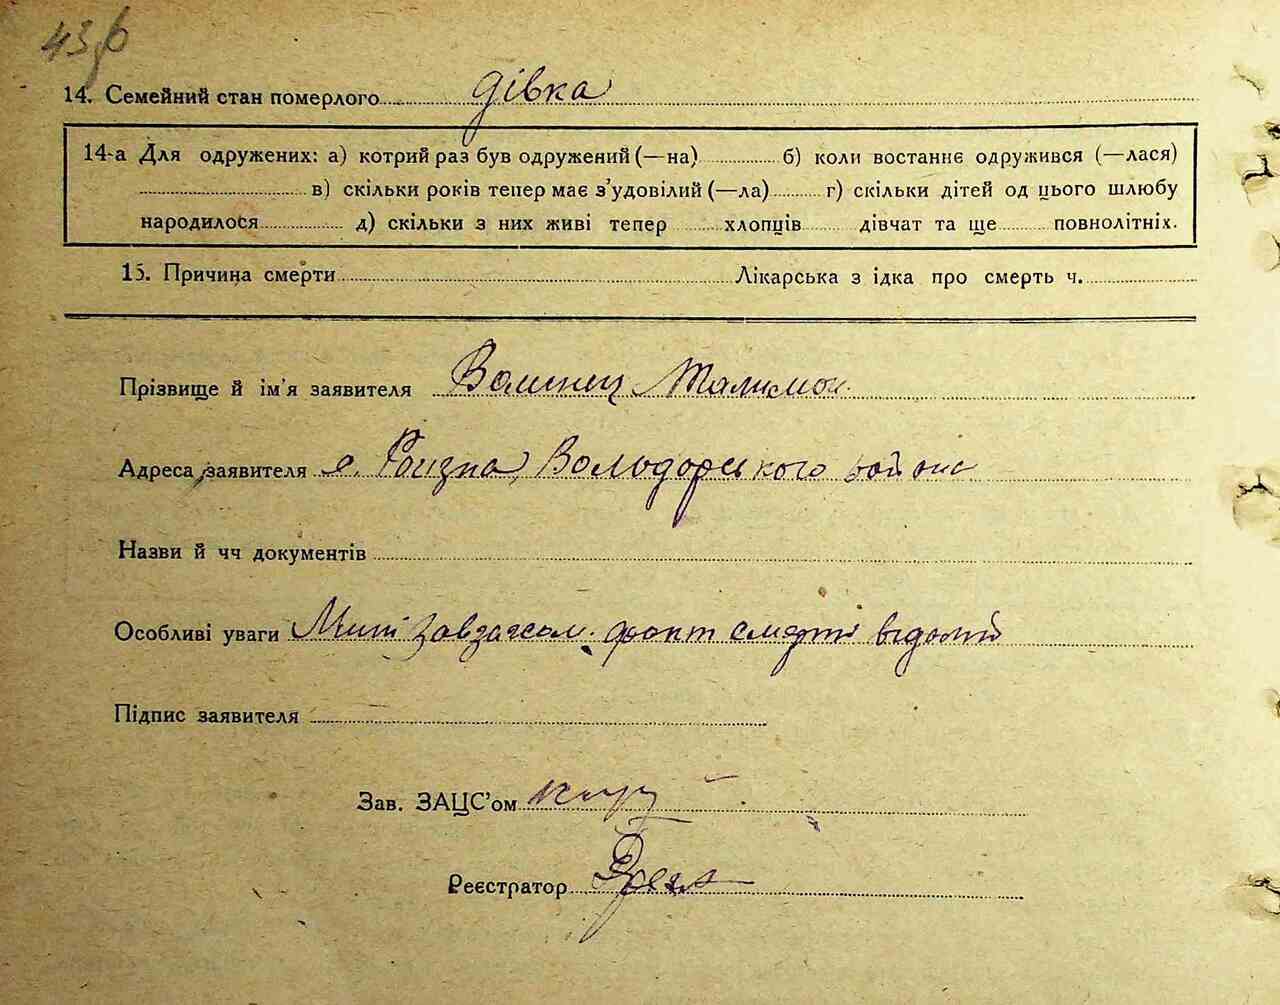 14. Семейний стан померлого дівка
14-а Для одружених: а) котрий раз був одружений (—на) б) коли востаннє одружився (—лася)
в) скільки років тепер має з'удовілий (—ла) г) скільки дітей од цього шлюбу
народилося д) скільки з них живі тепер хлопців дівчат та ще повнолітніх.
15. Причина смерти Лікарська з ідка про смерть ч.
Прізвище й ім'я заявителя
Адреса заявителя Володарського района
Назви й чч документів
Особливі уваги Мині факт смерті відомий
Підпис заявителя
Зав. ЗАЦС'ом
Реєстратор